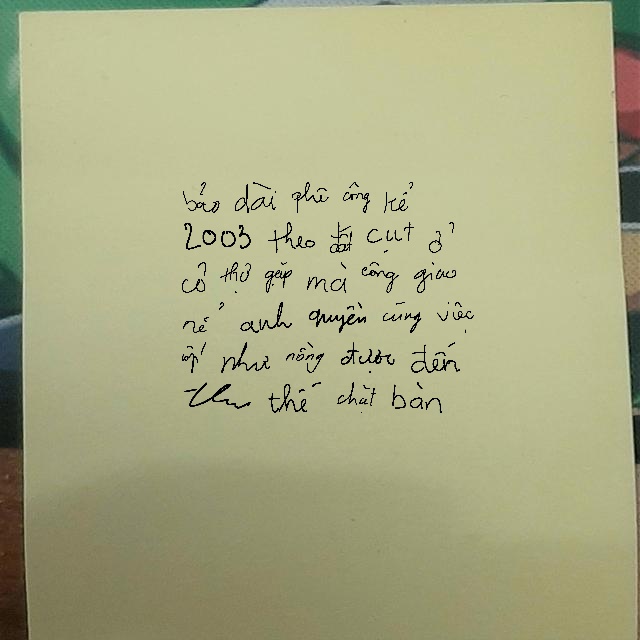 bảo dài phê công kể
2003 theo cụt ở
cổ thợ gặp mà công giao
nể anh quyền cũng việc
như nồng được đến
thế chật bàn